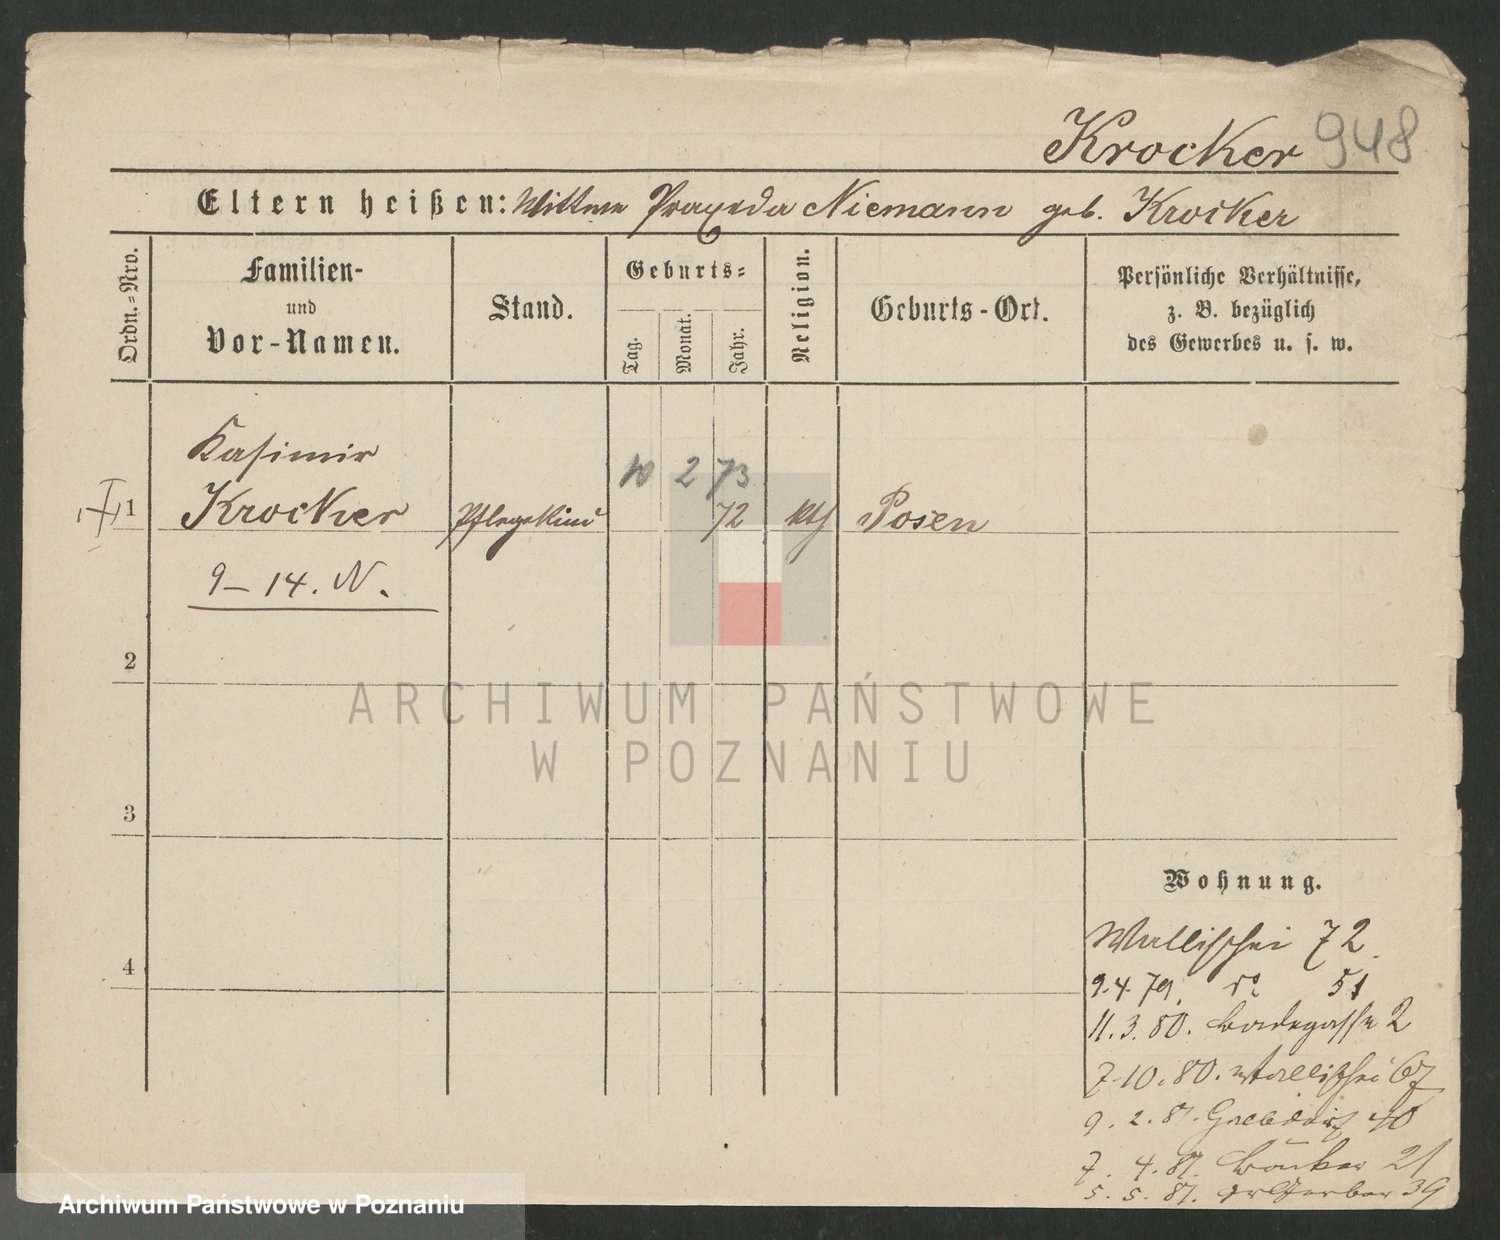 Krocker 948
Eltern heißen: Wittwe Praxeda Niemann geb. Krocker
Ordn.-Nro.
Familien-
und
Vor-Namen.
Stand.
Geburts-
Tag.
Monat.
Jahr.
Religion.
Geburts-Ort.
Persönliche Verhältnisse,
z. B. bezüglich
des Gewerbes u. s. w.
Kasimir
10 2 73
1 Krocker Pflegekind 72 kth Posen
9 – 14. N.
2
3
4
Wohnung.
Wallischei 72
9.4.79. 51
11.3.80. Badegasse 2
7.10.80. Wallischei 67
9.2.81. 40
7.4.81. 21
5.5.81. Gr Gerber 39
ARCHIWUM PAŃSTWOWE
W POZNANIU
Archiwum Państwowe w Poznaniu